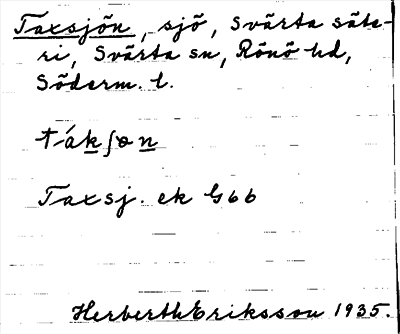 Taxsjön, sjö, Svärta säte-
ri, Svärta sn, Rönö hd,
Söderm. l.
tákʃən
Taxsj. ek G66
Herberth Eriksson 1935.